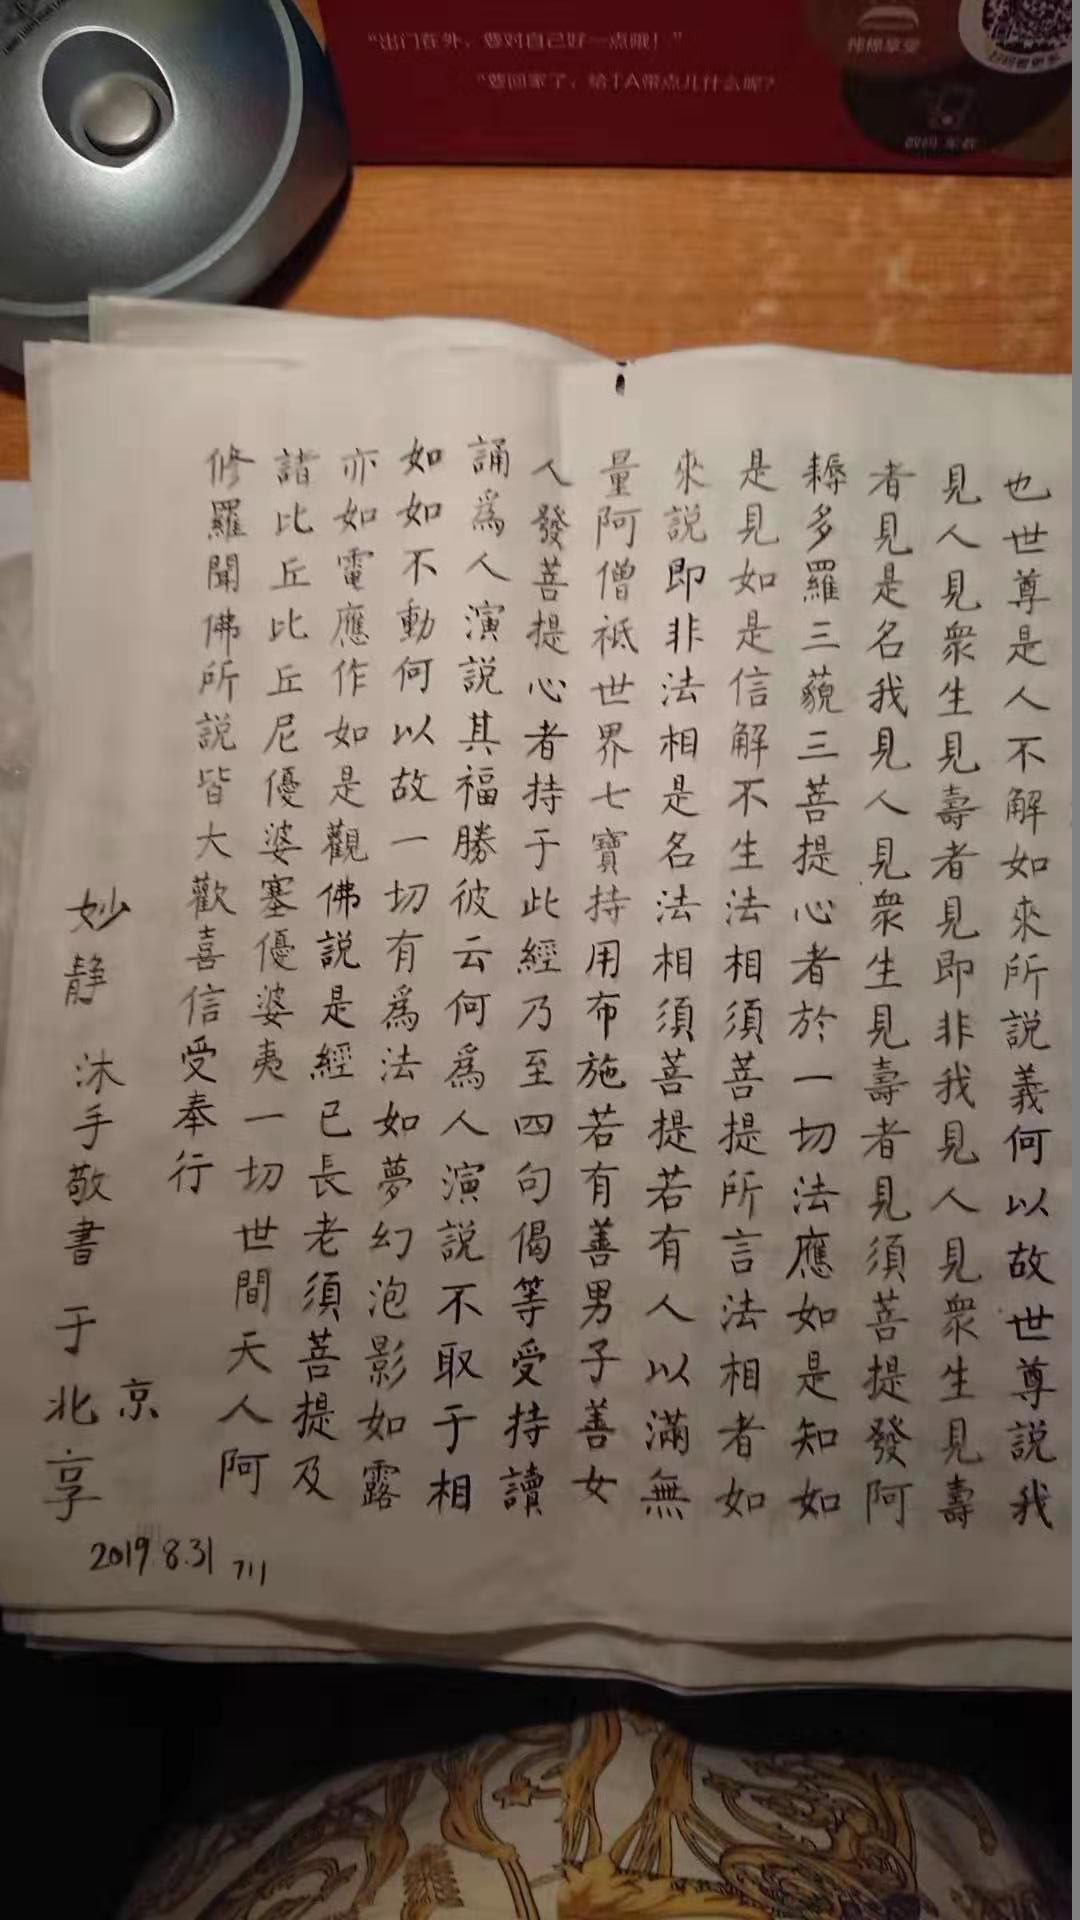 "出门在外，要对自己好一点哦！"
"要回家了，给TA带点儿什么呢？
也世尊是人不解如來所説義何以故世尊説我
見人見衆生見壽者見即非我見人見衆生見壽
者見是名我見人見衆生見壽者見須菩提發阿
耨多羅三藐三菩提心者於一切法應如是知如
是見如是信解不生法相須菩提所言法相者如
來説即非法相是名法相須菩提若有人以滿無
量阿僧祇世界七寶持用布施若有善男子善女
人發菩提心者持于此經乃至四句偈等受持讀
誦爲人演説其福勝彼云何爲人演説不取于相
如如不動何以故一切有爲法如夢幻泡影如露
亦如電應作如是觀佛説是經已長老須菩提及
諸比丘比丘尼優婆塞優婆夷一切世間天人阿
修羅聞佛所説皆大歡喜信受奉行
妙静 沐手敬書 于北享
京
2019.8.31 711